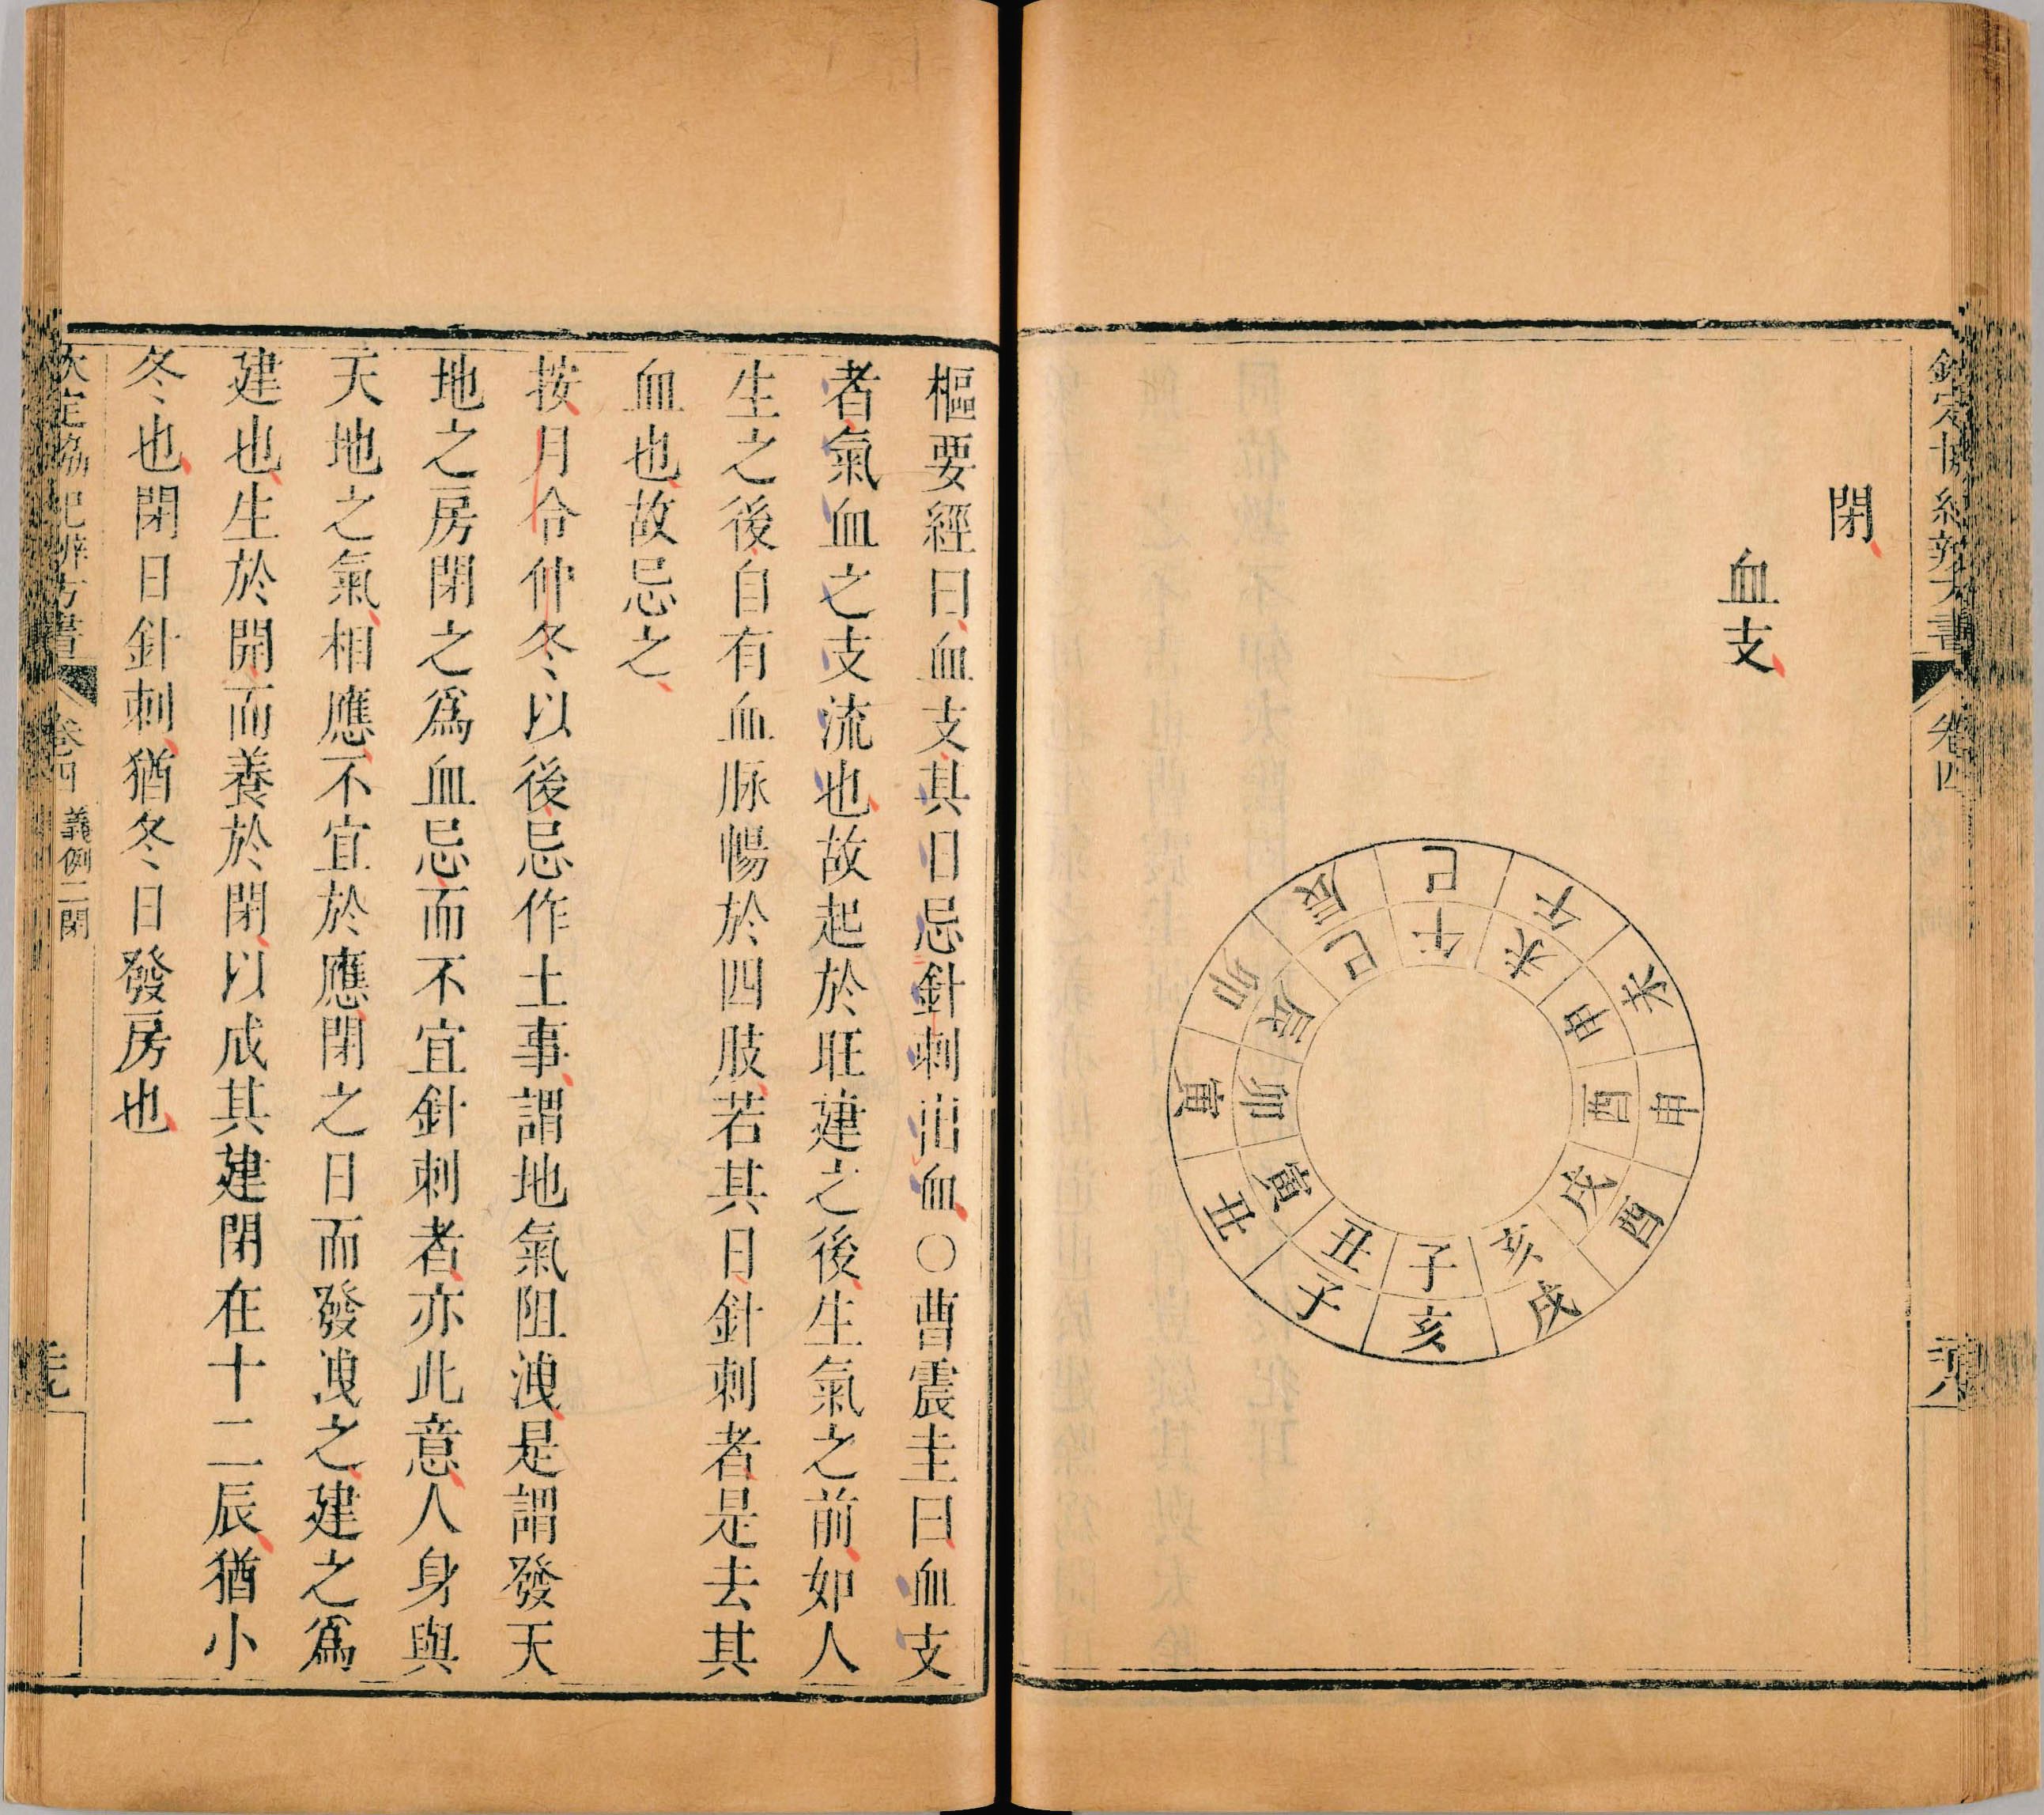 欽定協紀辨方書 卷四
閉
血支
巳午未申酉戌亥子丑寅卯辰
午未申酉戌亥子丑寅卯辰巳
樞要經曰血支其日忌針刺出血○曹震圭曰血支
者氣血之支流也故起於旺建之後生氣之前如人
生之後自有血脉暢於四肢若其日針刺者是去其
血也故忌之
按月令仲冬以後忌作土事謂地氣阻洩是謂發天
地之房閉之爲血忌而不宜針刺者亦此意人身與
天地之氣相應不宜於應閉之日而發洩之建之爲
建也生於開而養於閉以成其建閉在十二辰猶小
冬也閉日針刺猶冬日發房也
欽定協紀辨方書 卷四 義例二閉